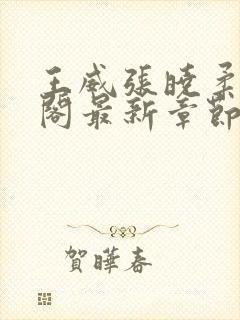 王威張曉柔
閣最新章節
賀曄春